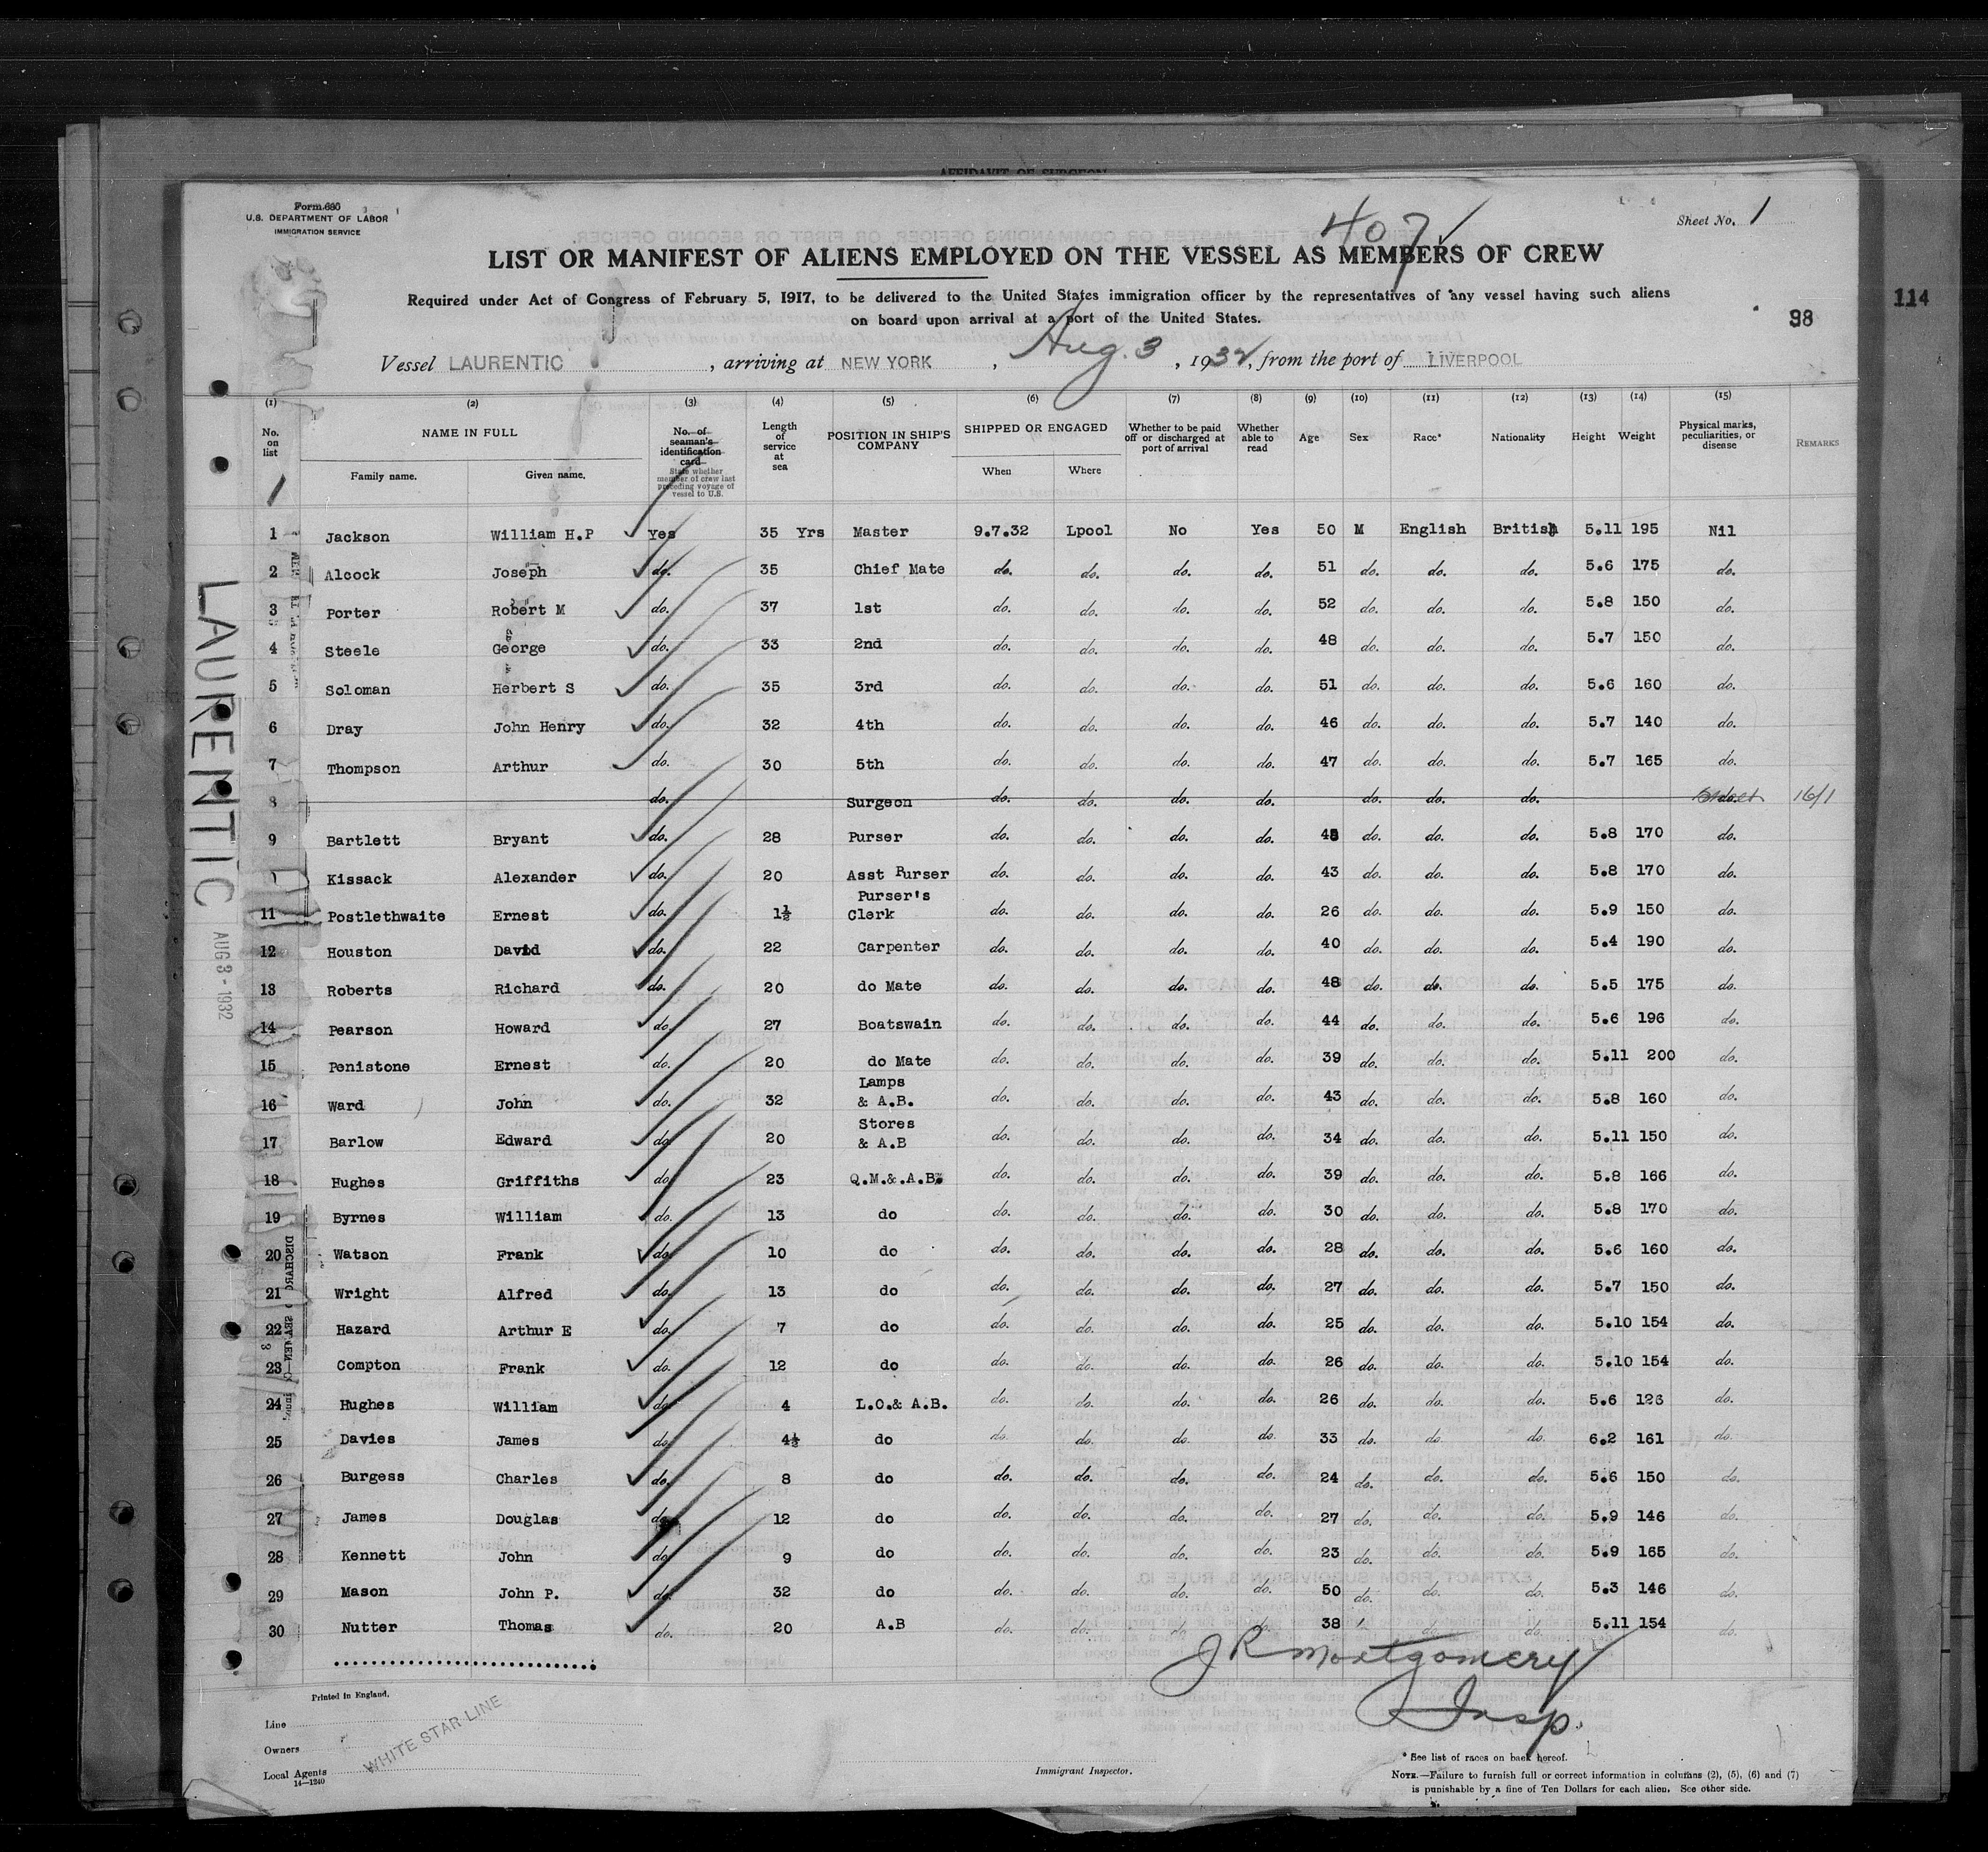 AFFIDAVIT OF SURGEON
Form 680
U.S. DEPARTMENT OF LABOR
IMMIGRATION SERVICE
407 ✓
Sheet No. 1
LIST OR MANIFEST OF ALIENS EMPLOYED ON THE VESSEL AS MEMBERS OF CREW
Required under Act of Congress of February 5, 1917, to be delivered to the United States immigration officer by the representatives of any vessel having such aliens
on board upon arrival at a port of the United States.
98
114
Vessel LAURENTIC, arriving at NEW YORK, Aug. 3, 1932, from the port of LIVERPOOL
(1) (2) (3) (4) (5) (6) (7) (8) (9) (10) (11) (12) (13) (14) (15)
No. on list NAME IN FULL Family name. Given name. No. of seaman's identification card State whether member of crew last preceding voyage of vessel to U.S. Length of service at sea POSITION IN SHIP'S COMPANY SHIPPED OR ENGAGED When Where Whether to be paid off or discharged at port of arrival Whether able to read Age Sex Race* Nationality Height Weight Physical marks, peculiarities, or disease REMARKS
1 Jackson William H.P Yes 35 Yrs Master 9.7.32 Lpool No Yes 50 M English British 5.11 195 Nil
2 Alcock Joseph do. 35 Chief Mate do. do. do. do. 51 do. do. do. 5.6 175 do.
3 Porter Robert M do. 37 1st do. do. do. do. 52 do. do. do. 5.8 150 do.
4 Steele George do. 33 2nd do. do. do. do. 48 do. do. do. 5.7 150 do.
5 Soloman Herbert S do. 35 3rd do. do. do. do. 51 do. do. do. 5.6 160 do.
6 Dray John Henry do. 32 4th do. do. do. do. 46 do. do. do. 5.7 140 do.
7 Thompson Arthur do. 30 5th do. do. do. do. 47 do. do. do. 5.7 165 do.
8 do. Surgeon do. do. do. do. do. do. do. do. 16/1
9 Bartlett Bryant do. 28 Purser do. do. do. do. 45 do. do. do. 5.8 170 do.
Kissack Alexander do. 20 Asst Purser do. do. do. do. 43 do. do. do. 5.8 170 do.
11 Postlethwaite Ernest do. 1½ Purser's Clerk do. do. do. do. 26 do. do. do. 5.9 150 do.
12 Houston David do. 22 Carpenter do. do. do. do. 40 do. do. do. 5.4 190 do.
13 Roberts Richard do. 20 do Mate do. do. do. do. 48 do. do. do. 5.5 175 do.
14 Pearson Howard do. 27 Boatswain do. do. do. do. 44 do. do. do. 5.6 196 do.
15 Penistone Ernest do. 20 do Mate do. do. do. do. 39 do. do. do. 5.11 200 do.
16 Ward John do. 32 Lamps & A.B. do. do. do. do. 43 do. do. do. 5.8 160 do.
17 Barlow Edward do. 20 Stores & A.B do. do. do. do. 34 do. do. do. 5.11 150 do.
18 Hughes Griffiths do. 23 Q.M.&.A.B. do. do. do. do. 39 do. do. do. 5.8 166 do.
19 Byrnes William do. 13 do do. do. do. do. 30 do. do. do. 5.8 170 do.
20 Watson Frank do. 10 do do. do. do. do. 28 do. do. do. 5.6 160 do.
21 Wright Alfred do. 13 do do. do. do. do. 27 do. do. do. 5.7 150 do.
22 Hazard Arthur E do. 7 do do. do. do. do. 25 do. do. do. 5.10 154 do.
23 Compton Frank do. 12 do do. do. do. do. 26 do. do. do. 5.10 154 do.
24 Hughes William do. 4 L.O.& A.B. do. do. do. do. 26 do. do. do. 5.6 126 do.
25 Davies James do. 4½ do do. do. do. do. 33 do. do. do. 6.2 161 do.
26 Burgess Charles do. 8 do do. do. do. do. 24 do. do. do. 5.6 150 do.
27 James Douglas do. 12 do do. do. do. do. 27 do. do. do. 5.9 146 do.
28 Kennett John do. 9 do do. do. do. do. 23 do. do. do. 5.9 165 do.
29 Mason John P. do. 32 do do. do. do. do. 50 do. do. do. 5.3 146 do.
30 Nutter Thomas do. 20 A.B do. do. do. do. 38 do. do. 5.11 154 do.
LAURENTIC
AUG 3 - 1932
J R Montgomery
Insp.
Printed in England.
Line
Owners
Local Agents
14—1240
WHITE STAR LINE
Immigrant Inspector.
* See list of races on back hereof.
NOTE.—Failure to furnish full or correct information in columns (2), (5), (6) and (7)
is punishable by a fine of Ten Dollars for each alien. See other side.